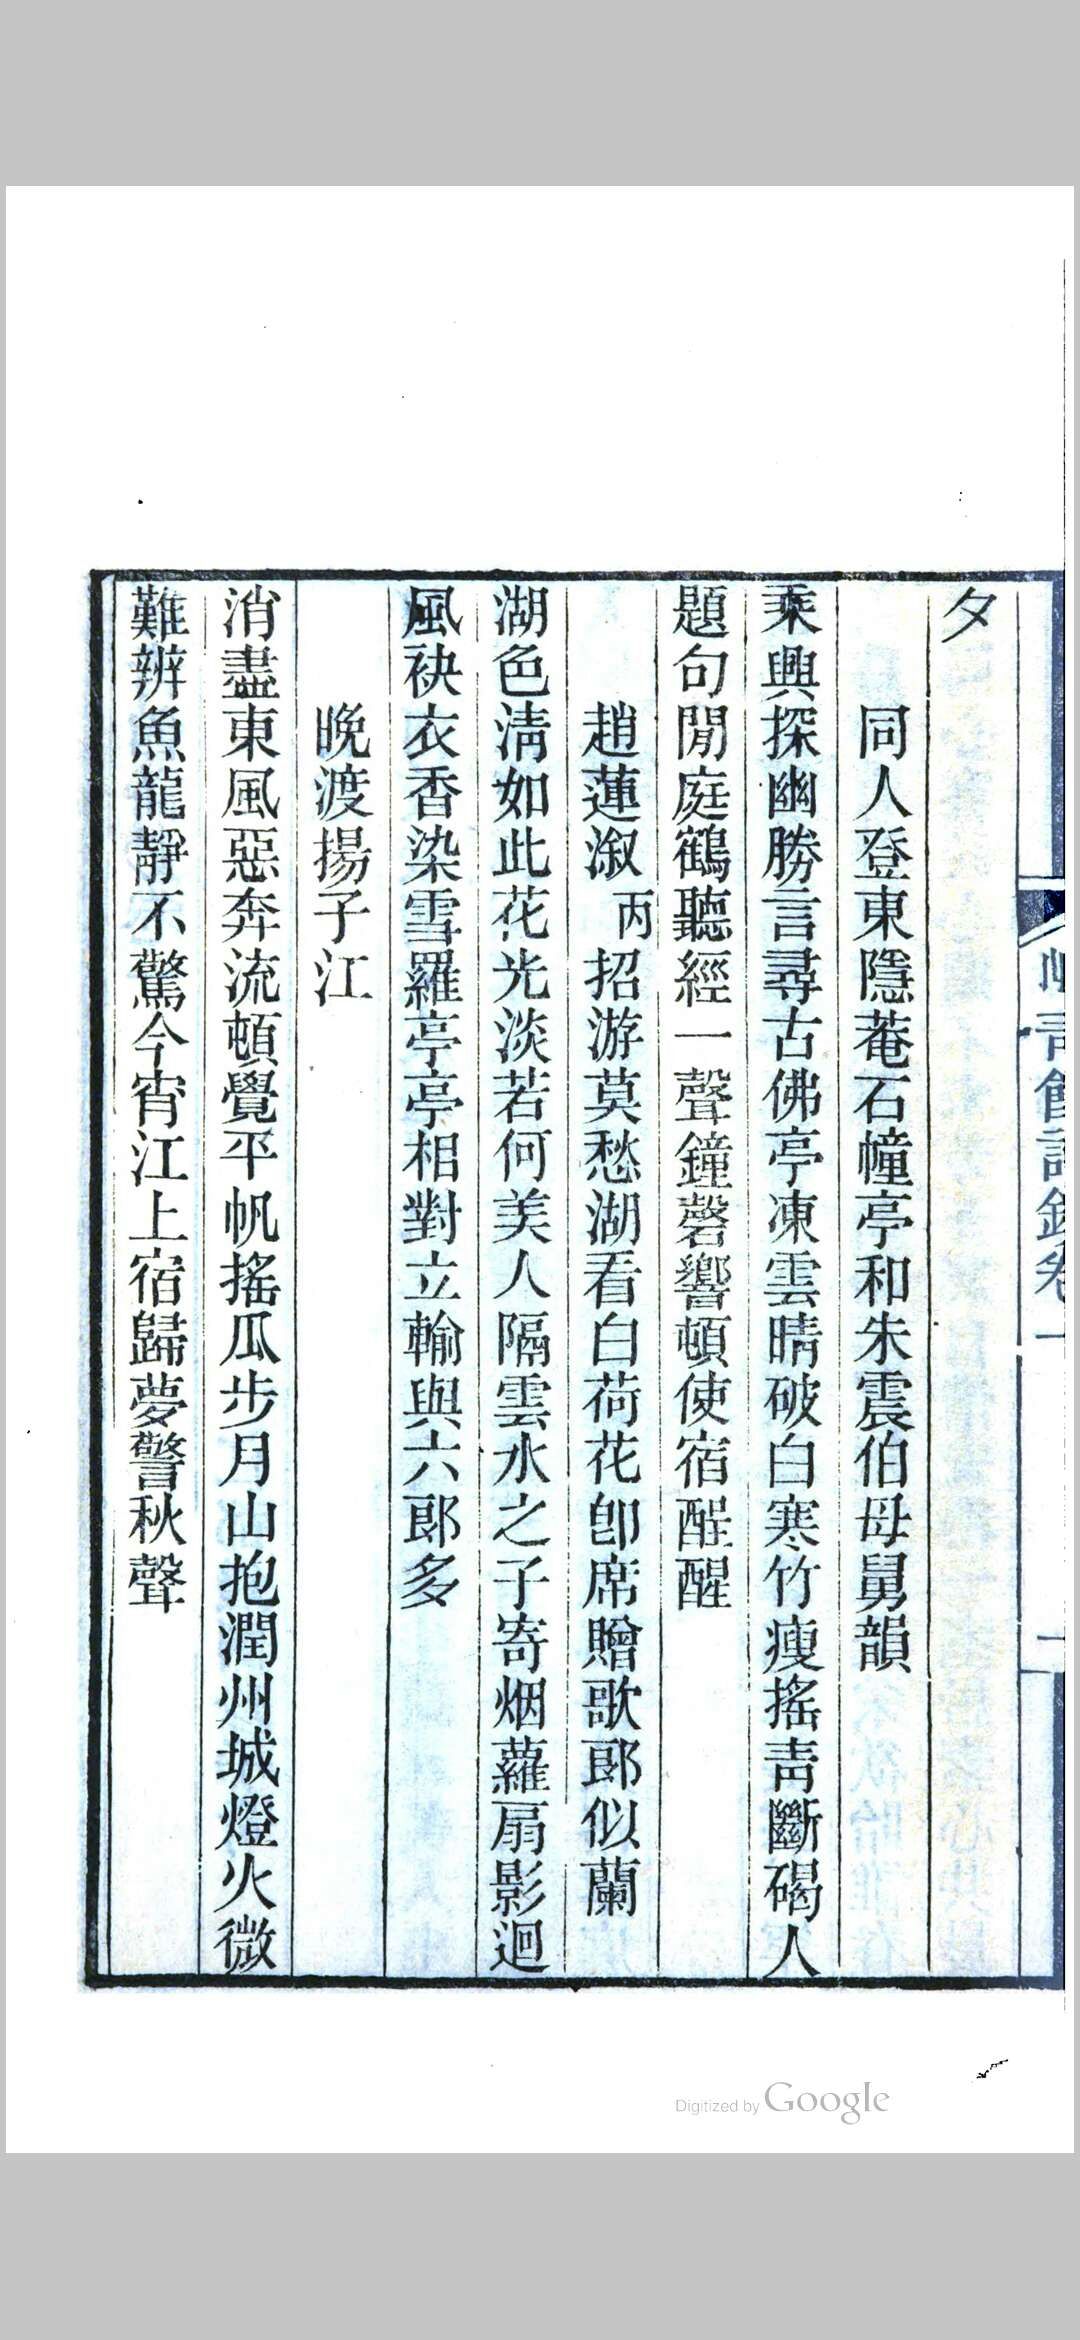 夕
同人登東隱菴石幢亭和朱震伯母舅韻
乘興探幽勝言尋古佛亭凍雲晴破白寒竹瘦搖靑斷碣人
題句閒庭鶴聽經一聲鐘磬響頓使宿酲醒
趙蓮漵丙招游莫愁湖看白荷花卽席贈歌郞似蘭
湖色淸如此花光淡若何美人隔雲水之子寄烟蘿扇影迴
風袂衣香染雪羅亭亭相對立輸與六郞多
晚渡揚子江
消盡東風惡奔流頓覺平帆搖瓜步月山抱潤州城燈火微
難辨魚龍靜不驚今宵江上宿歸夢警秋聲
Digitized by Google